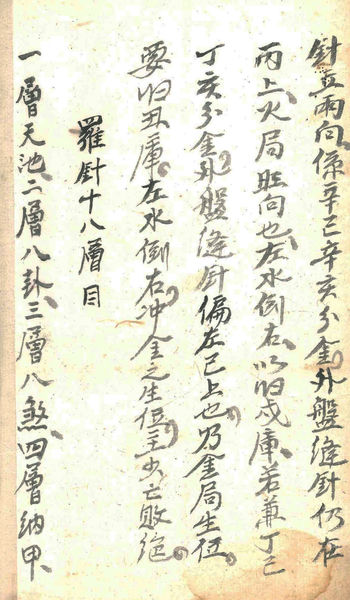 針五兩向係辛巳辛亥分金外盤縫針仍在
丙上火局旺向也左水倒右以归戌庫若兼丁巳
丁亥分金外盤縫針偏左巳上也乃金局生位
要归丑庫左水倒右冲金之生位主少亡敗絶
羅針十八層目
一層天池二層八卦三層八煞四層納甲